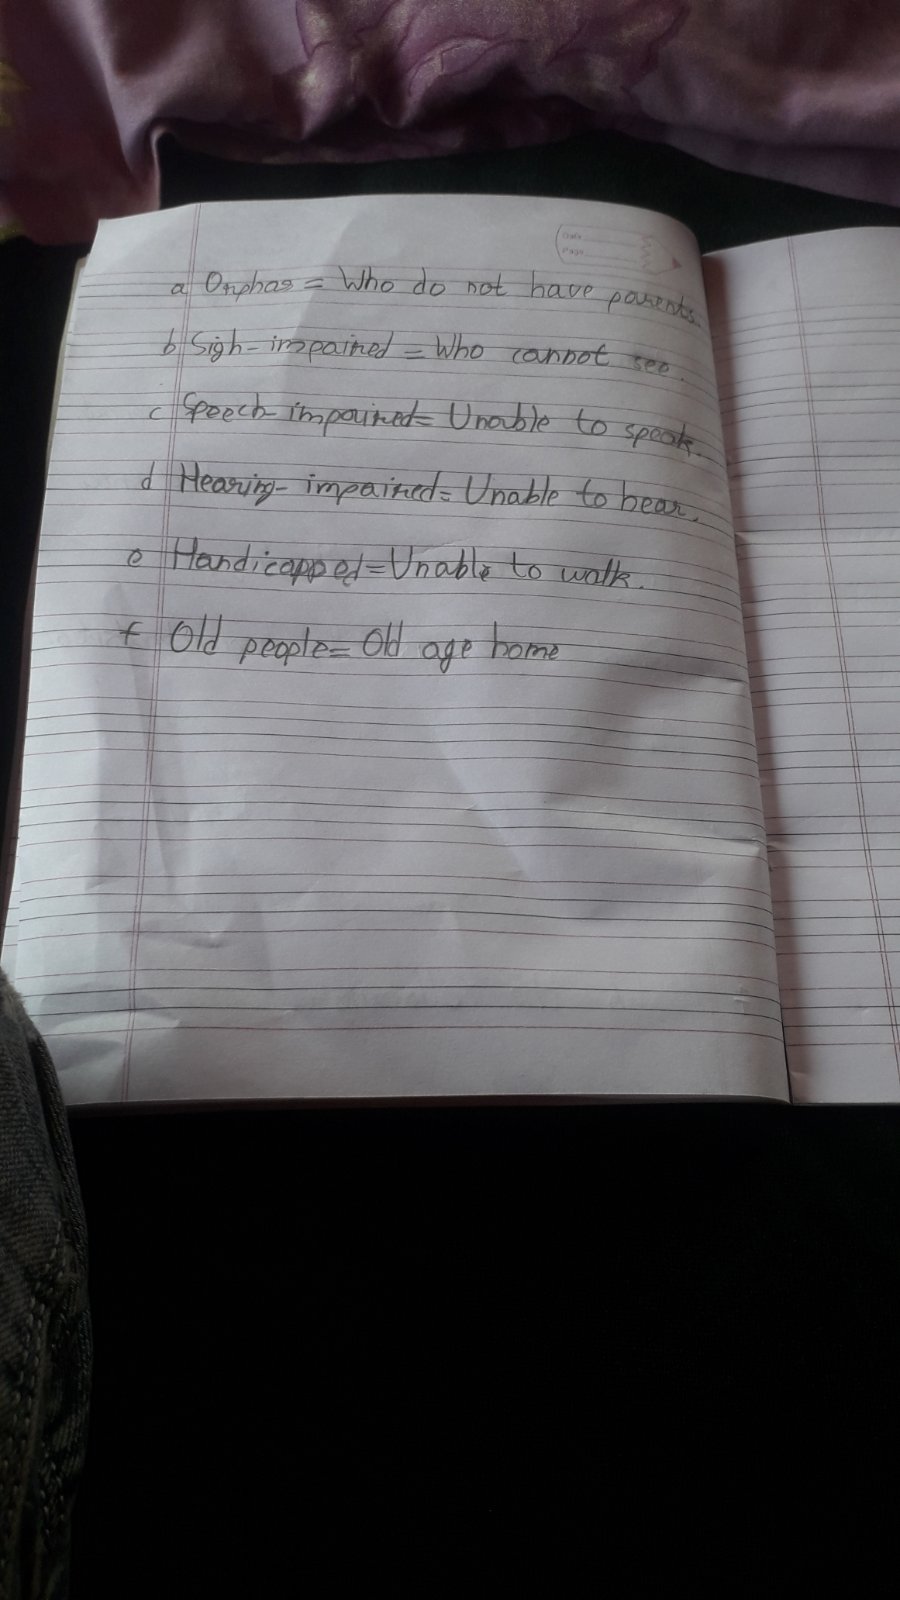 Date
Page
a Orphas = Who do not have parents.
b Sigh-impaired = Who cannot see.
c Speech-impaired = Unable to speak.
d Hearing-impaired = Unable to hear.
e Handicapped = Unable to walk.
f Old people = Old age home